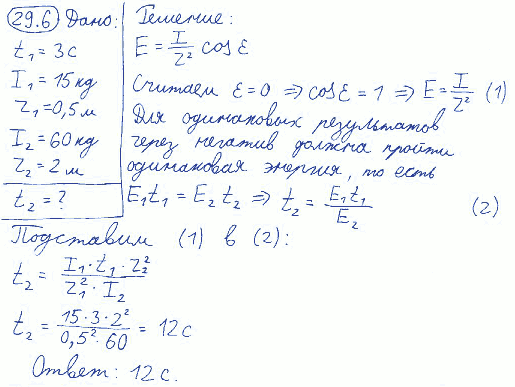 29.6 Дано: Решение:
t₁ = 3с
I₁ = 15 кд
r₁ = 0,5 м
I₂ = 60 кд
r₂ = 2 м
t₂ = ?
E = I/r² cos ε
Считаем ε = 0 ⇒ cos ε = 1 ⇒ E = I/r² (1)
Для одинаковых результатов
через негатив должна пройти
одинаковая энергия, то есть
E₁t₁ = E₂t₂ ⇒ t₂ = E₁t₁/E₂ (2)
Подставим (1) в (2):
t₂ = I₁·t₁·r₂²/r₁²·I₂
t₂ = 15·3·2²/0,5²·60 = 12с
Ответ: 12 с.